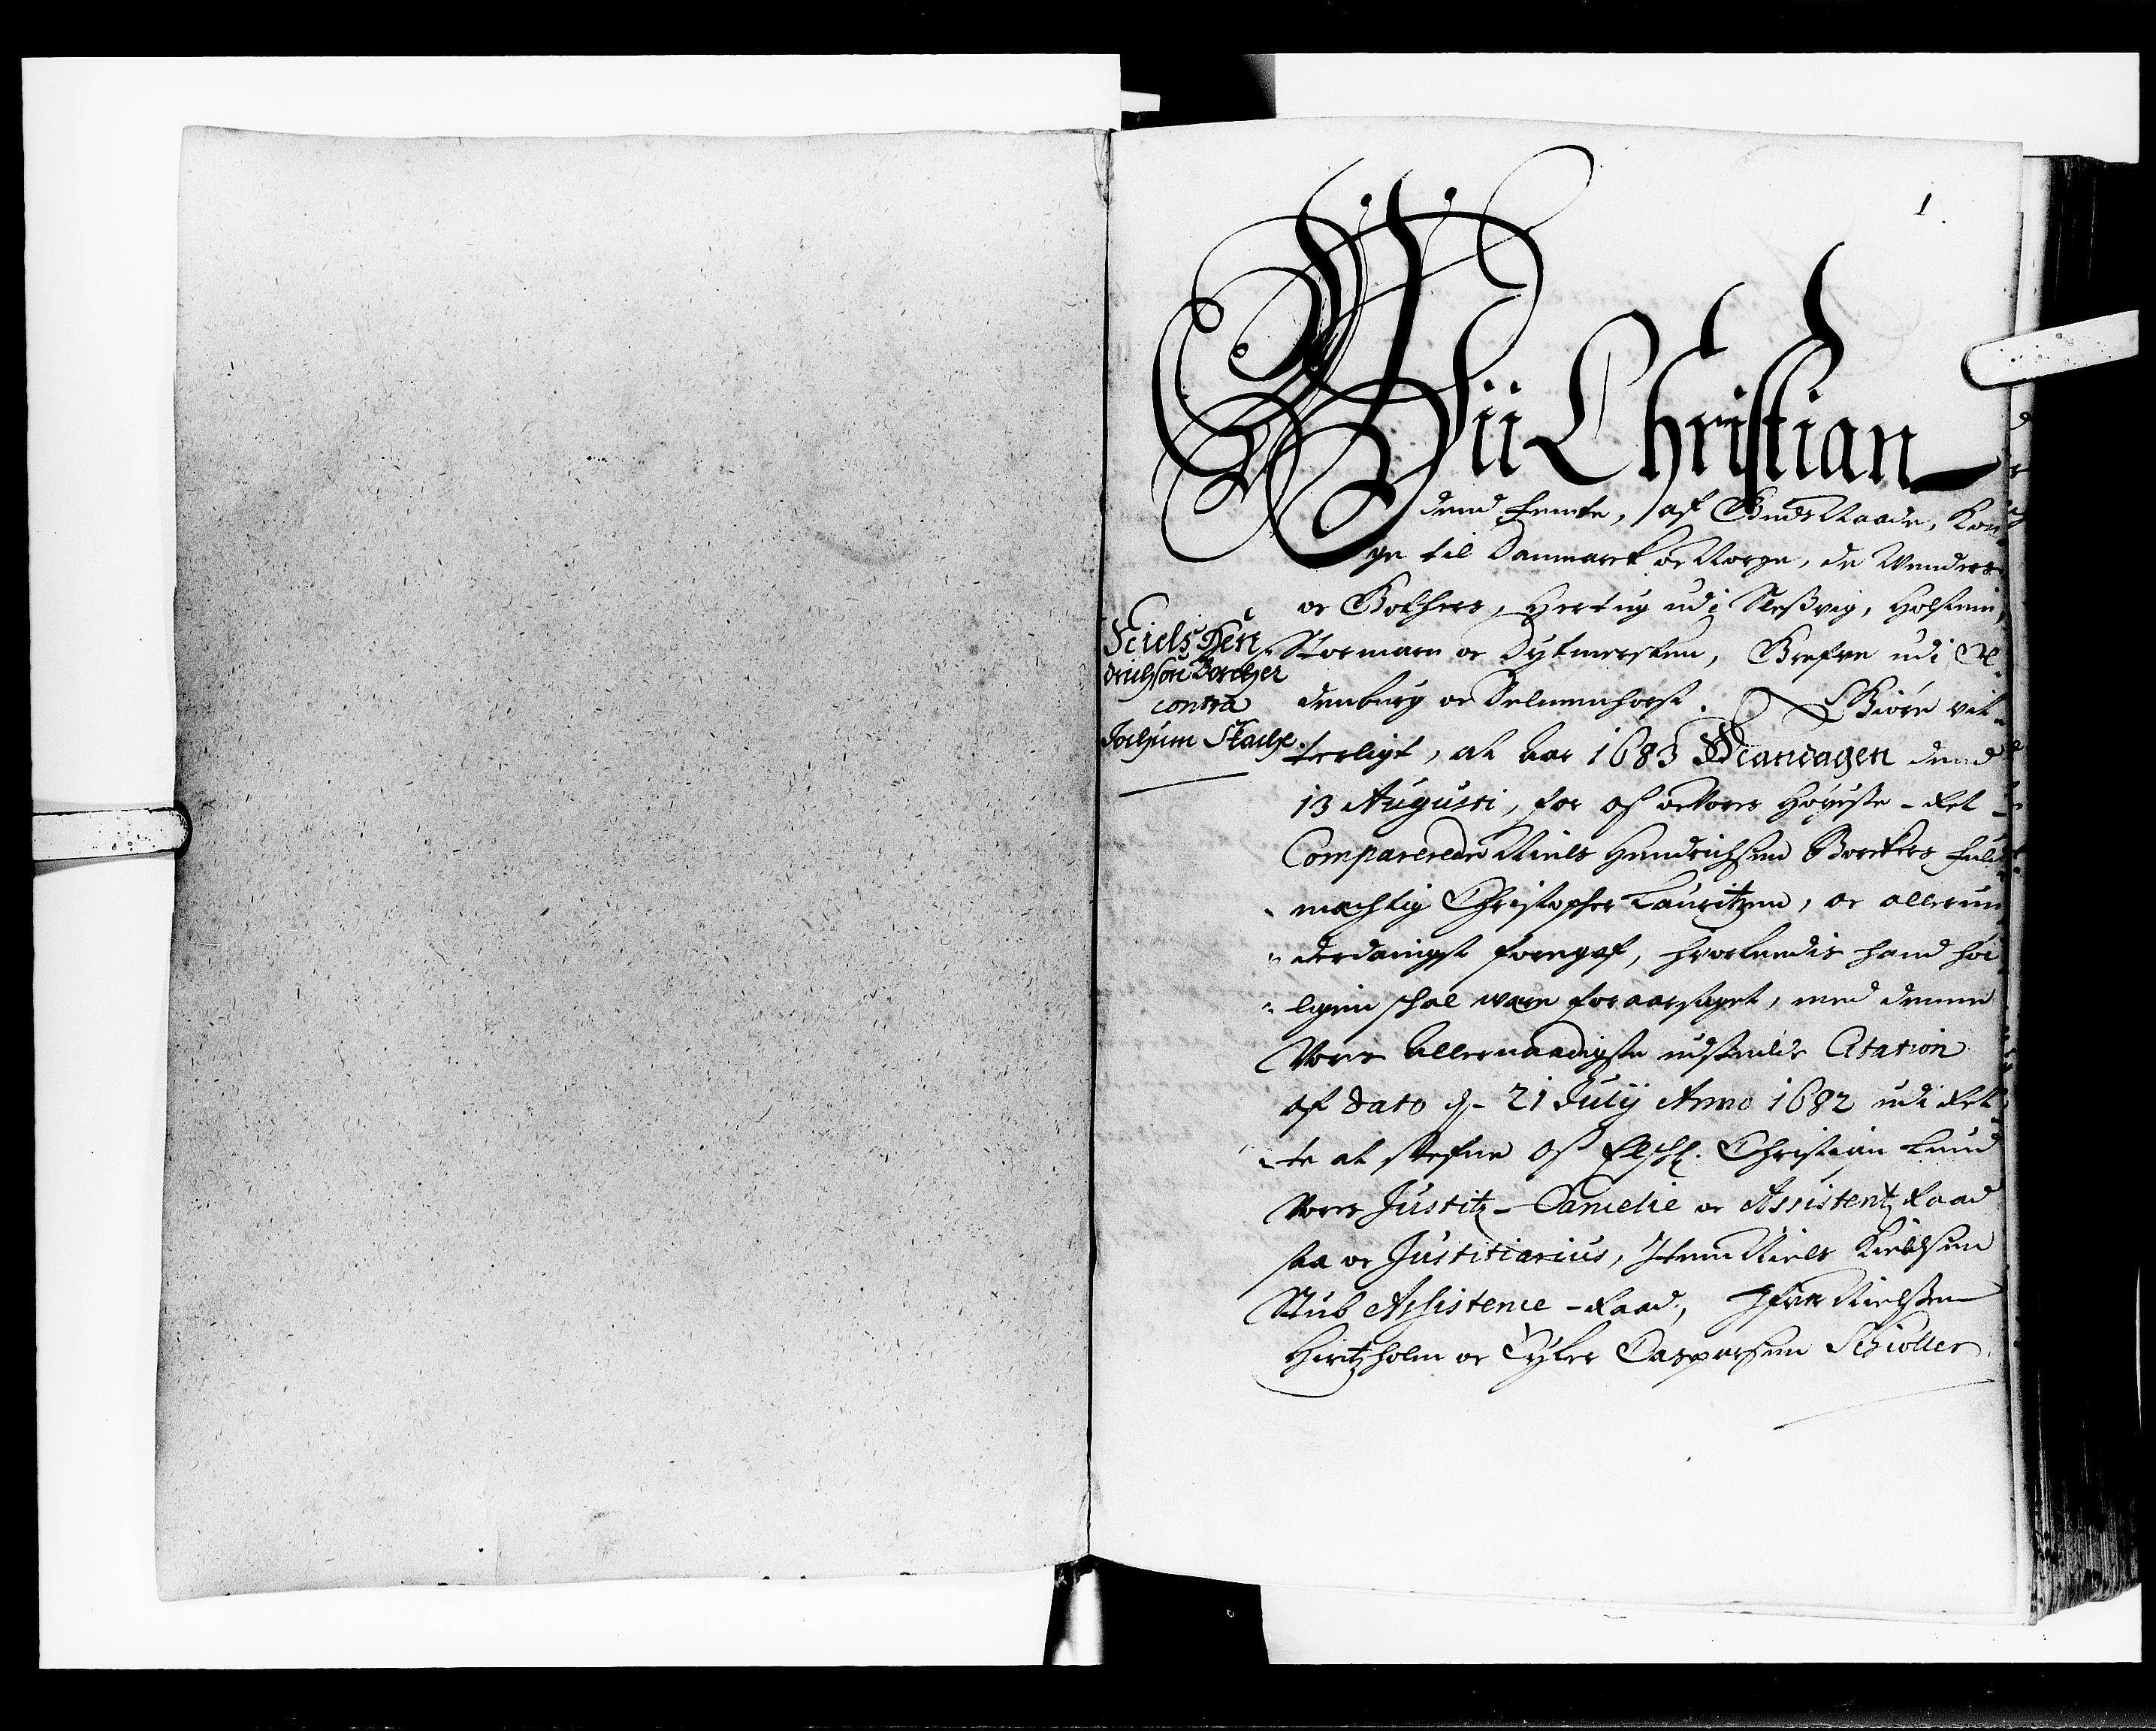 1.
Wii Christian
dend femte, af Guds Naade, Kon
ge til Danmarck oc Norge, de Wenders
oc Gothers, Hertug udi Sleßvig, Holsten,
Stormarn oc Dytmersken, Grefve udi Ol
denburg oc Delmenhorst. Giöre vit
terligt, at Aar 1683 Mandagen dend
13 Augusti, for os oc Vores Höyeste-Ret
Comparerede Niels Hendrichsens Borckers fuld
mechtig Christopher Lauritzen, oc allerun
derdanigst foregaf, hvorledis hand höi
ligen skal være foraarsaget, med denne
Vores Allernaadigste udstædde Citation
af Dato d. 21 Julij Anno 1682 udi Ret
te at stefne Os Elskl. Christian Lund
Vores Justitz-Cancelie oc Assistentz Raad
saa oc Justitiarius, Item Niels
Stub Assistence-Raad, Nielsen
Hiritzholm oc Tyker Casparsen Schiöller
Niels Hen
drichsen Borcher
contra
Jochum Stache.